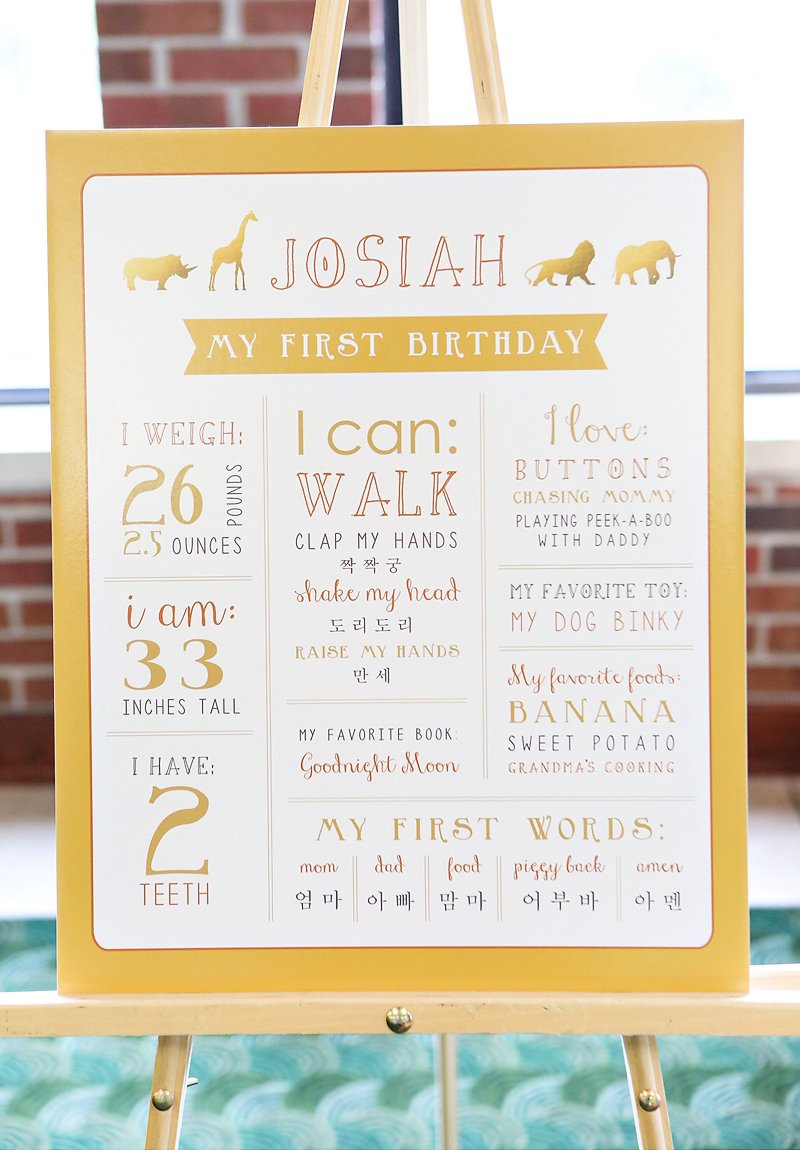 JOSIAH
MY FIRST BIRTHDAY
I WEIGH:
26
POUNDS
2.5 OUNCES
i am:
33
INCHES TALL
I HAVE:
2
TEETH
I can:
WALK
CLAP MY HANDS
짝짝궁
shake my head
도리도리
RAISE MY HANDS
만세
MY FAVORITE BOOK:
Goodnight Moon
I love:
BUTTONS
CHASING MOMMY
PLAYING PEEK-A-BOO
WITH DADDY
MY FAVORITE TOY:
MY DOG BINKY
My favorite foods:
BANANA
SWEET POTATO
GRANDMA'S COOKING
MY FIRST WORDS:
mom dad food piggy back amen
엄마 아빠 맘마 어부바 아멘